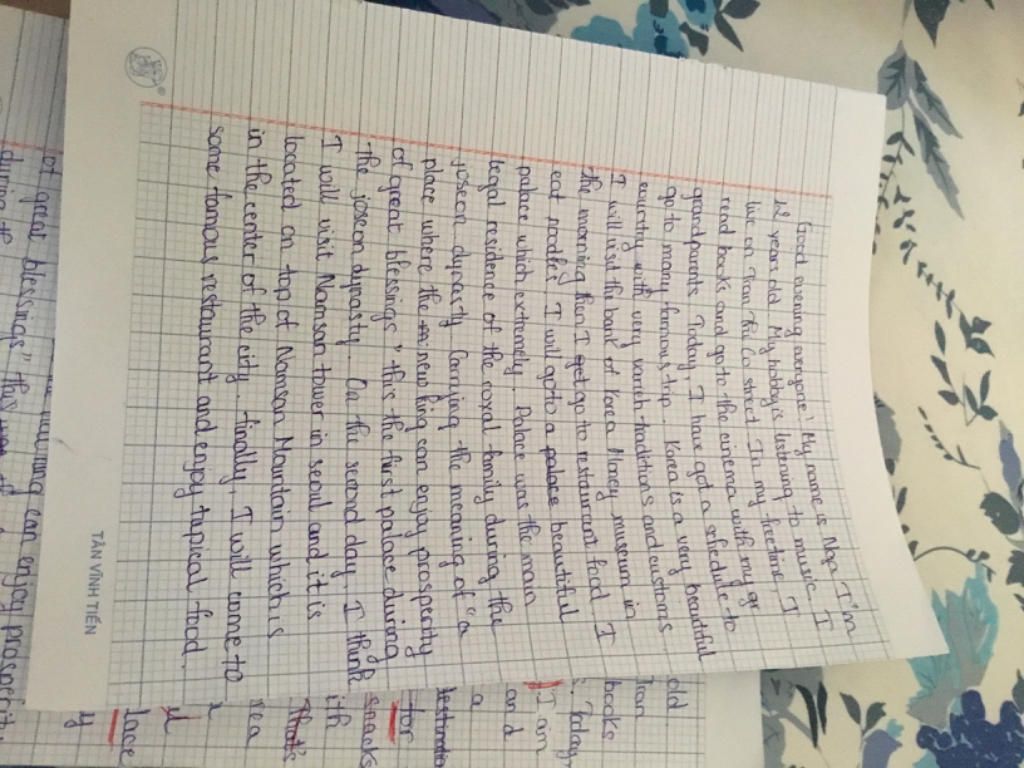 Good evening everyone! My name is Nga I'm
12 years old. My hobby is listening to music. I
live on Tran Thu Co street. In my freetime, I
read books and go to the cinema with my gr
grandparents. Today, I have got a schedule to
go to many famous trip. Korea is a very beautiful
country with very varieh traditions and customs.
I will visit the bank of Korea Money museum in
the morning then I get go to restaurant food I
eat noodles. I will go to a palace beautiful
palace which extremely. Palace was the main
legal residence of the royal family during the
joseon dynasty Carrying the meaning of "a
place where the m new king can enjoy prosperity
of great blessings" this the first palace during
the joseon dynasty. On the second day, I think
I will visit Namsan tower in seoul and it is
located on top of Namsan Mountain which is
in the center of the city. finally, I will come to
some famous restaurant and enjoy typical food.
TÂN VĨNH TIẾN
old
Tran
books
. Today,
I am
and
a
destinatio
for
snacks
ith
That's
rea
lace
y
can enjoy prosperity
of great blessings" this
during th